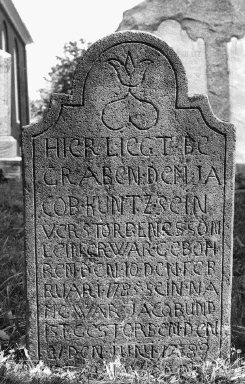 HIER LIEGT BE
GRABEN DEM JA
COB KUNTZ SEIN
VERSTORBENES SÖN
LEIN ER WAR GEBOH
REN DEN 10 DEN FEB
RUARI 1785 SEIN NA
ME WAR JACOB UND
IST GESTORBEN DEN
DEN JUNI 1789